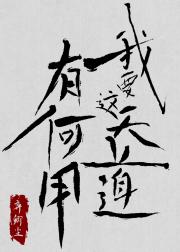 我要这天道
有何用
辛卿尘